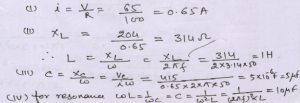 (i) i = V/R = 65/100 = 0.65A
(ii) XL = 204/0.65 = 314Ω
∴ L = XL/ω = XL/2πf = 314/2×3.14×50 = 1H
(iii) C = Xc/ω = Vc/iω = 415/0.65×2π×50 = 5×10⁻⁶F = 5μF
(iv) for resonance ωL = 1/ωC = C = 1/ω²L = 1/(2πf)²×L = 10μF